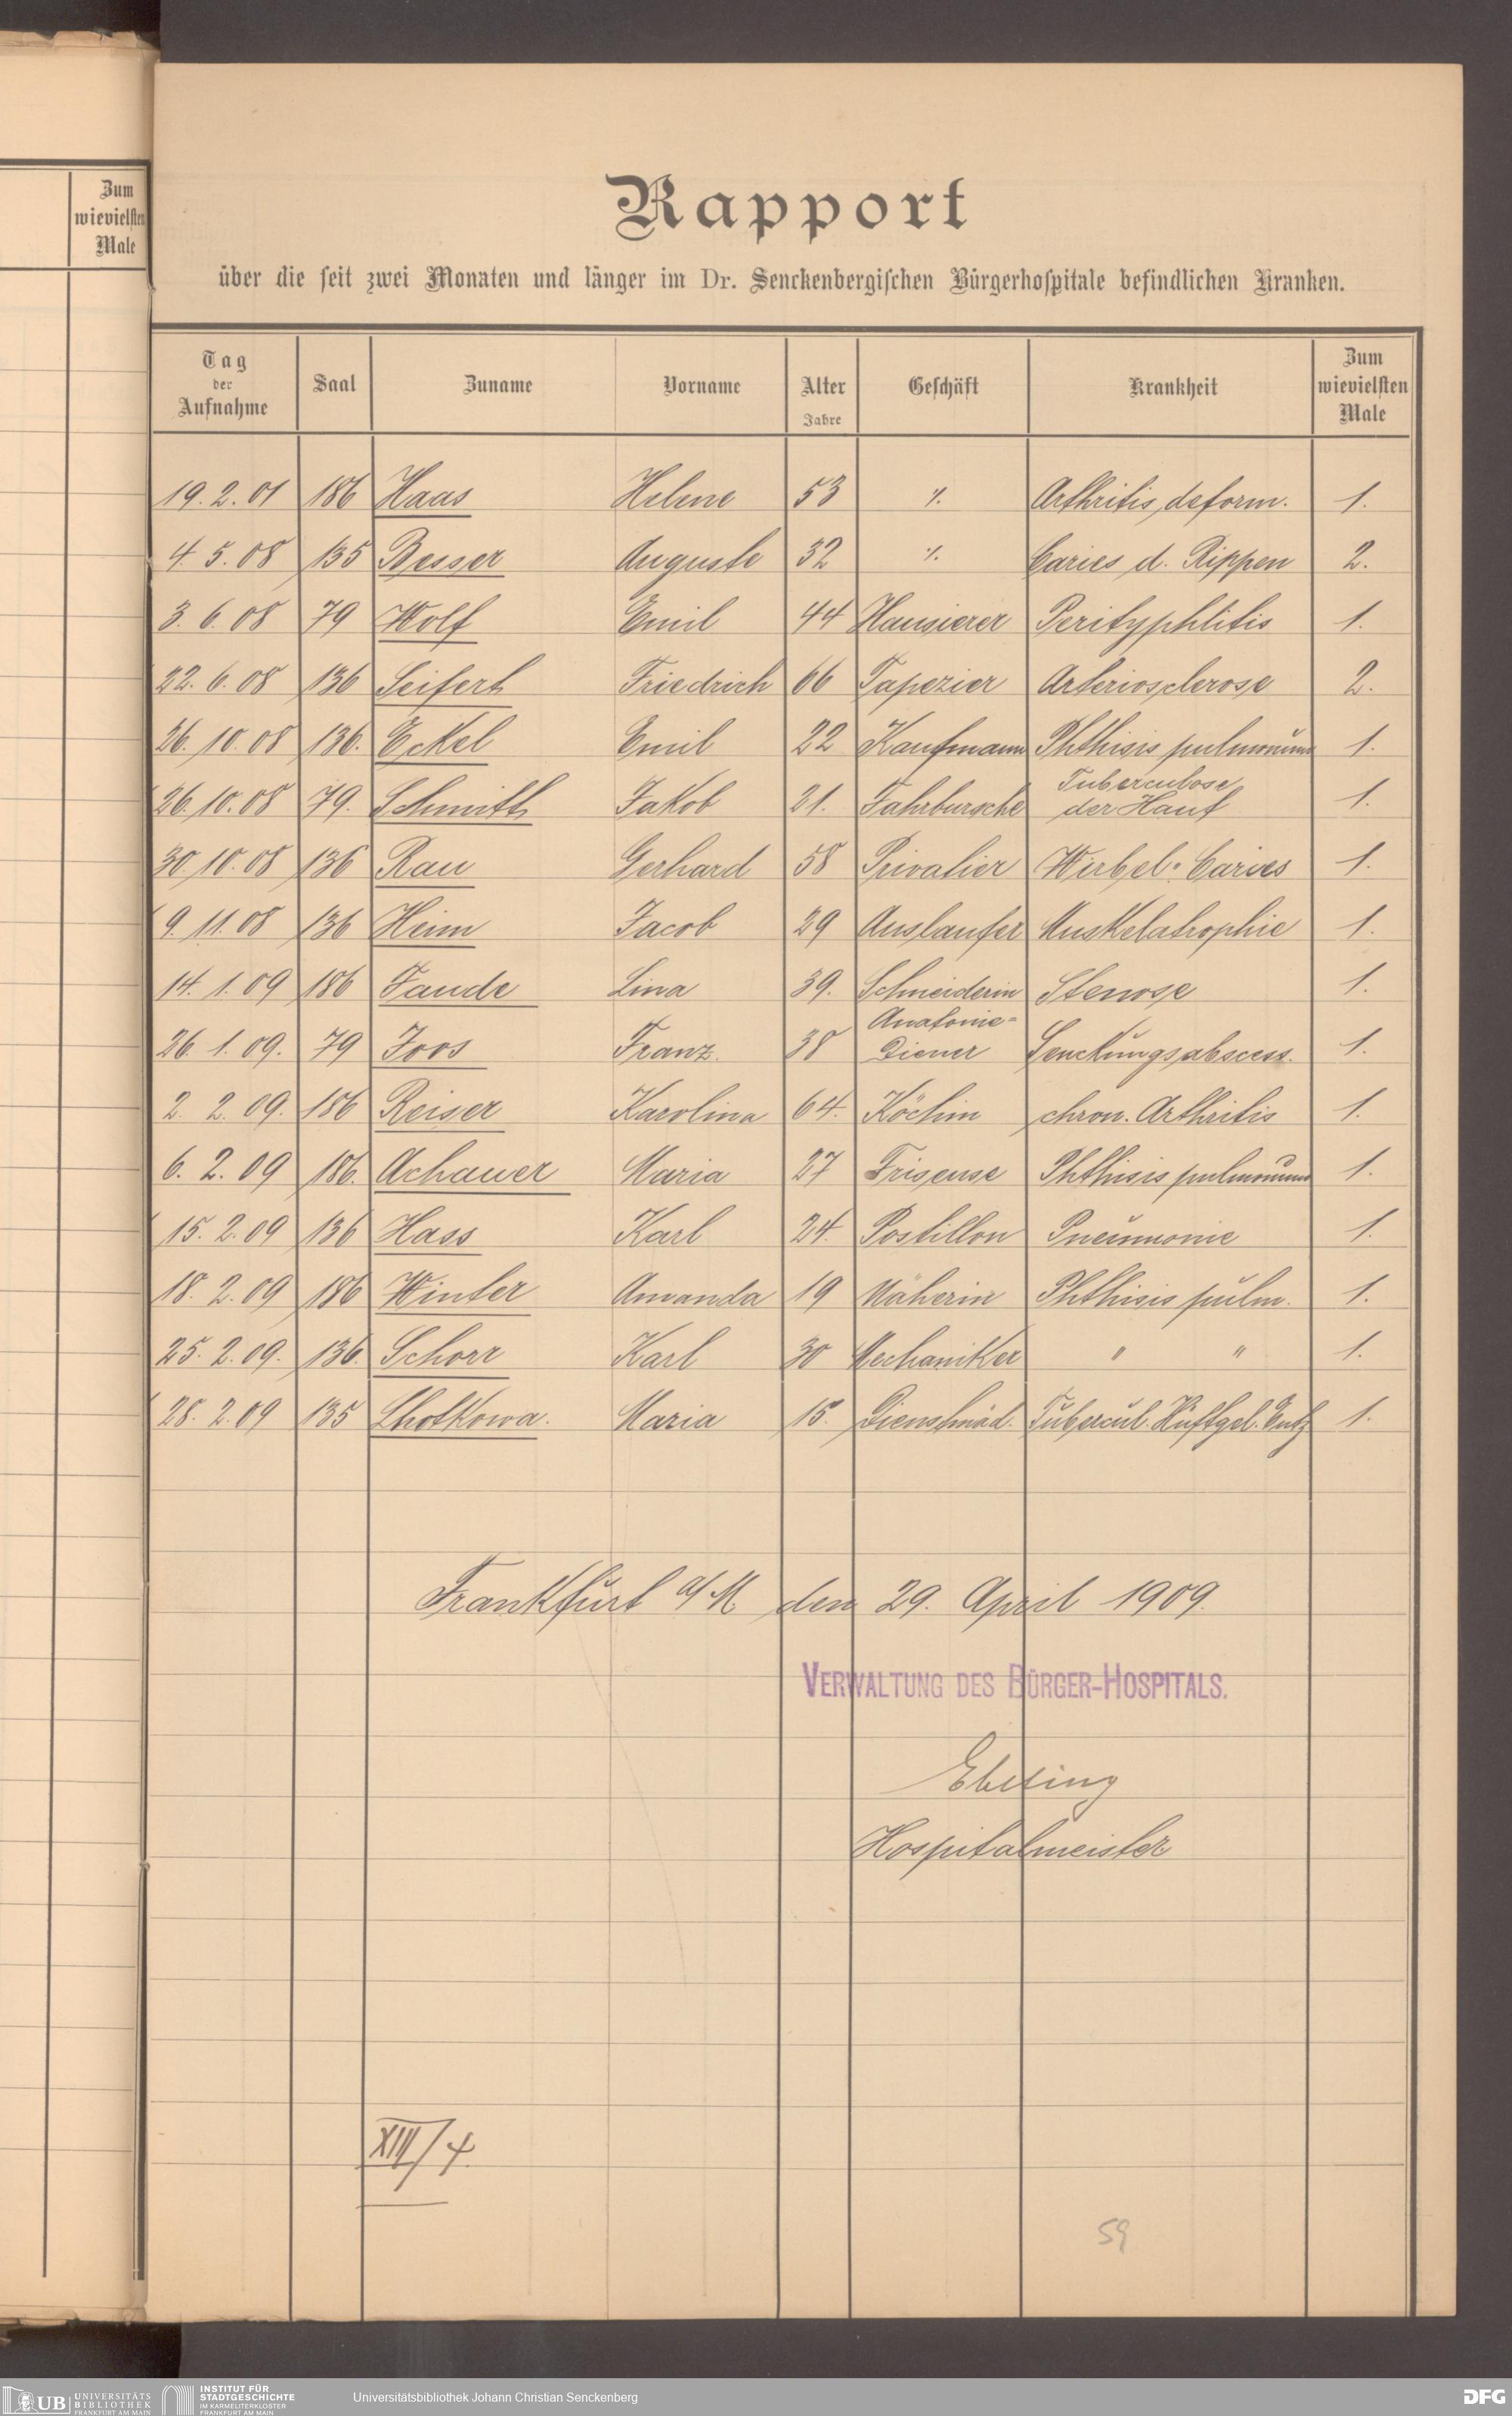 Zum
wievielsten
Male
Rapport
über die seit zwei Monaten und länger im Dr. Senckenbergischen Bürgerhospitale befindlichen Kranken.
Tag der Aufnahme Saal Zuname Vorname Alter Jahre Geschäft Krankheit Zum wievielsten Male
19. 2. 01 186 Haas Helene 53 ./. Arthritis deform. 1.
4. 5. 08 135 Besser Auguste 32 ./. Caries d. Rippen 2.
3. 6. 08 79 Wolf Emil 44 Hausierer Perityphlitis 1.
22. 6. 08 136 Seifert Friedrich 66 Tapezier Arteriosclerose 2.
26. 10. 08 136. Eckel Emil 22 Kaufmann Phthisis pulmonum 1.
26. 10. 08 79. Schmitt Jakob 21. Fahrbursche Tuberculose der Haut 1.
30. 10. 08 136 Rau Gerhard 58 Privatier Wirbel-Caries 1.
9. 11. 08 136 Heim Jacob 29 Auslaufer Muskelatrophie 1.
14. 1. 09 186 Faude Lina 39. Schneiderin Stenose 1.
26. 1. 09. 79 Joos Franz. 38 Anatomie-Diener Senckungsabscess. 1.
2. 2. 09. 186 Reiser Karolina 64. Köchin chron. Arthritis 1.
6. 2. 09 186. Achauer Maria 27 Friseuse Phthisis pulmonum 1.
15. 2. 09 136 Hass Karl 24. Postillon Pneumonie 1.
18. 2. 09 186 Winter Amanda 19 Näherin Phthisis pulm. 1.
25. 2. 09. 136. Schorr Karl 30 Mechaniker " " 1.
28. 2. 09 135 Lhotkowa. Maria 15. Dienstmäd. Tubercul. Hüftgel. Entz 1.
Frankfurt a/M den 29. April 1909.
VERWALTUNG DES BÜRGER-HOSPITALS.
Ebeling
Hospitalmeister
XIII/4.
59
UB UNIVERSITÄTS BIBLIOTHEK FRANKFURT AM MAIN
INSTITUT FÜR STADTGESCHICHTE IM KARMELITERKLOSTER FRANKFURT AM MAIN
Universitätsbibliothek Johann Christian Senckenberg
DFG